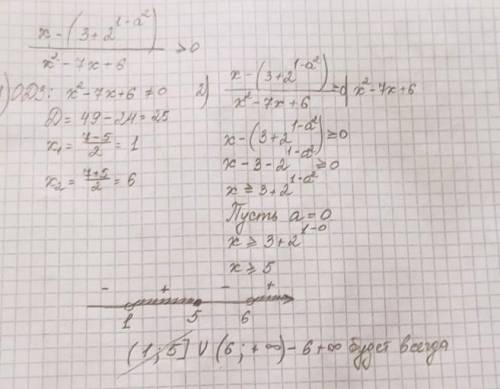 x-(3+2^{1-a²}) / x²-7x+6 ≥0
1) ОДЗ: x²-7x+6≠0
D=49-24=25
x₁=(7-5)/2=1
x₂=(7+5)/2=6
2) x-(3+2^{1-a²}) / x²-7x+6 ≥0 | x²-7x+6
x-(3+2^{1-a²})≥0
x-3-2^{1-a²}≥0
x≥3+2^{1-a²}
Пусть a=0
x≥3+2^{1-0}
x≥5
- + - +
1 5 6
(1;5]∪(6;+∞)-6+∞ будет всегда